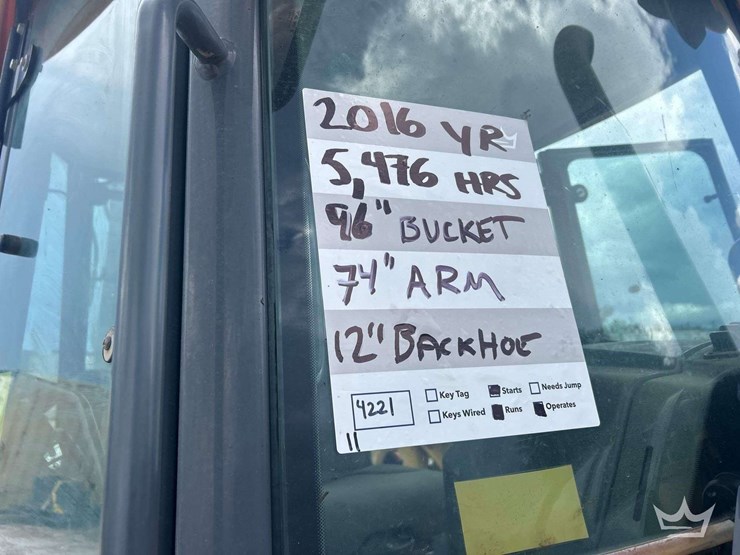 2016 YR
5,476 HRS
96" BUCKET
74" ARM
12" BACKHOE
4221 Key Tag Starts Needs Jump
Keys Wired Runs Operates
11